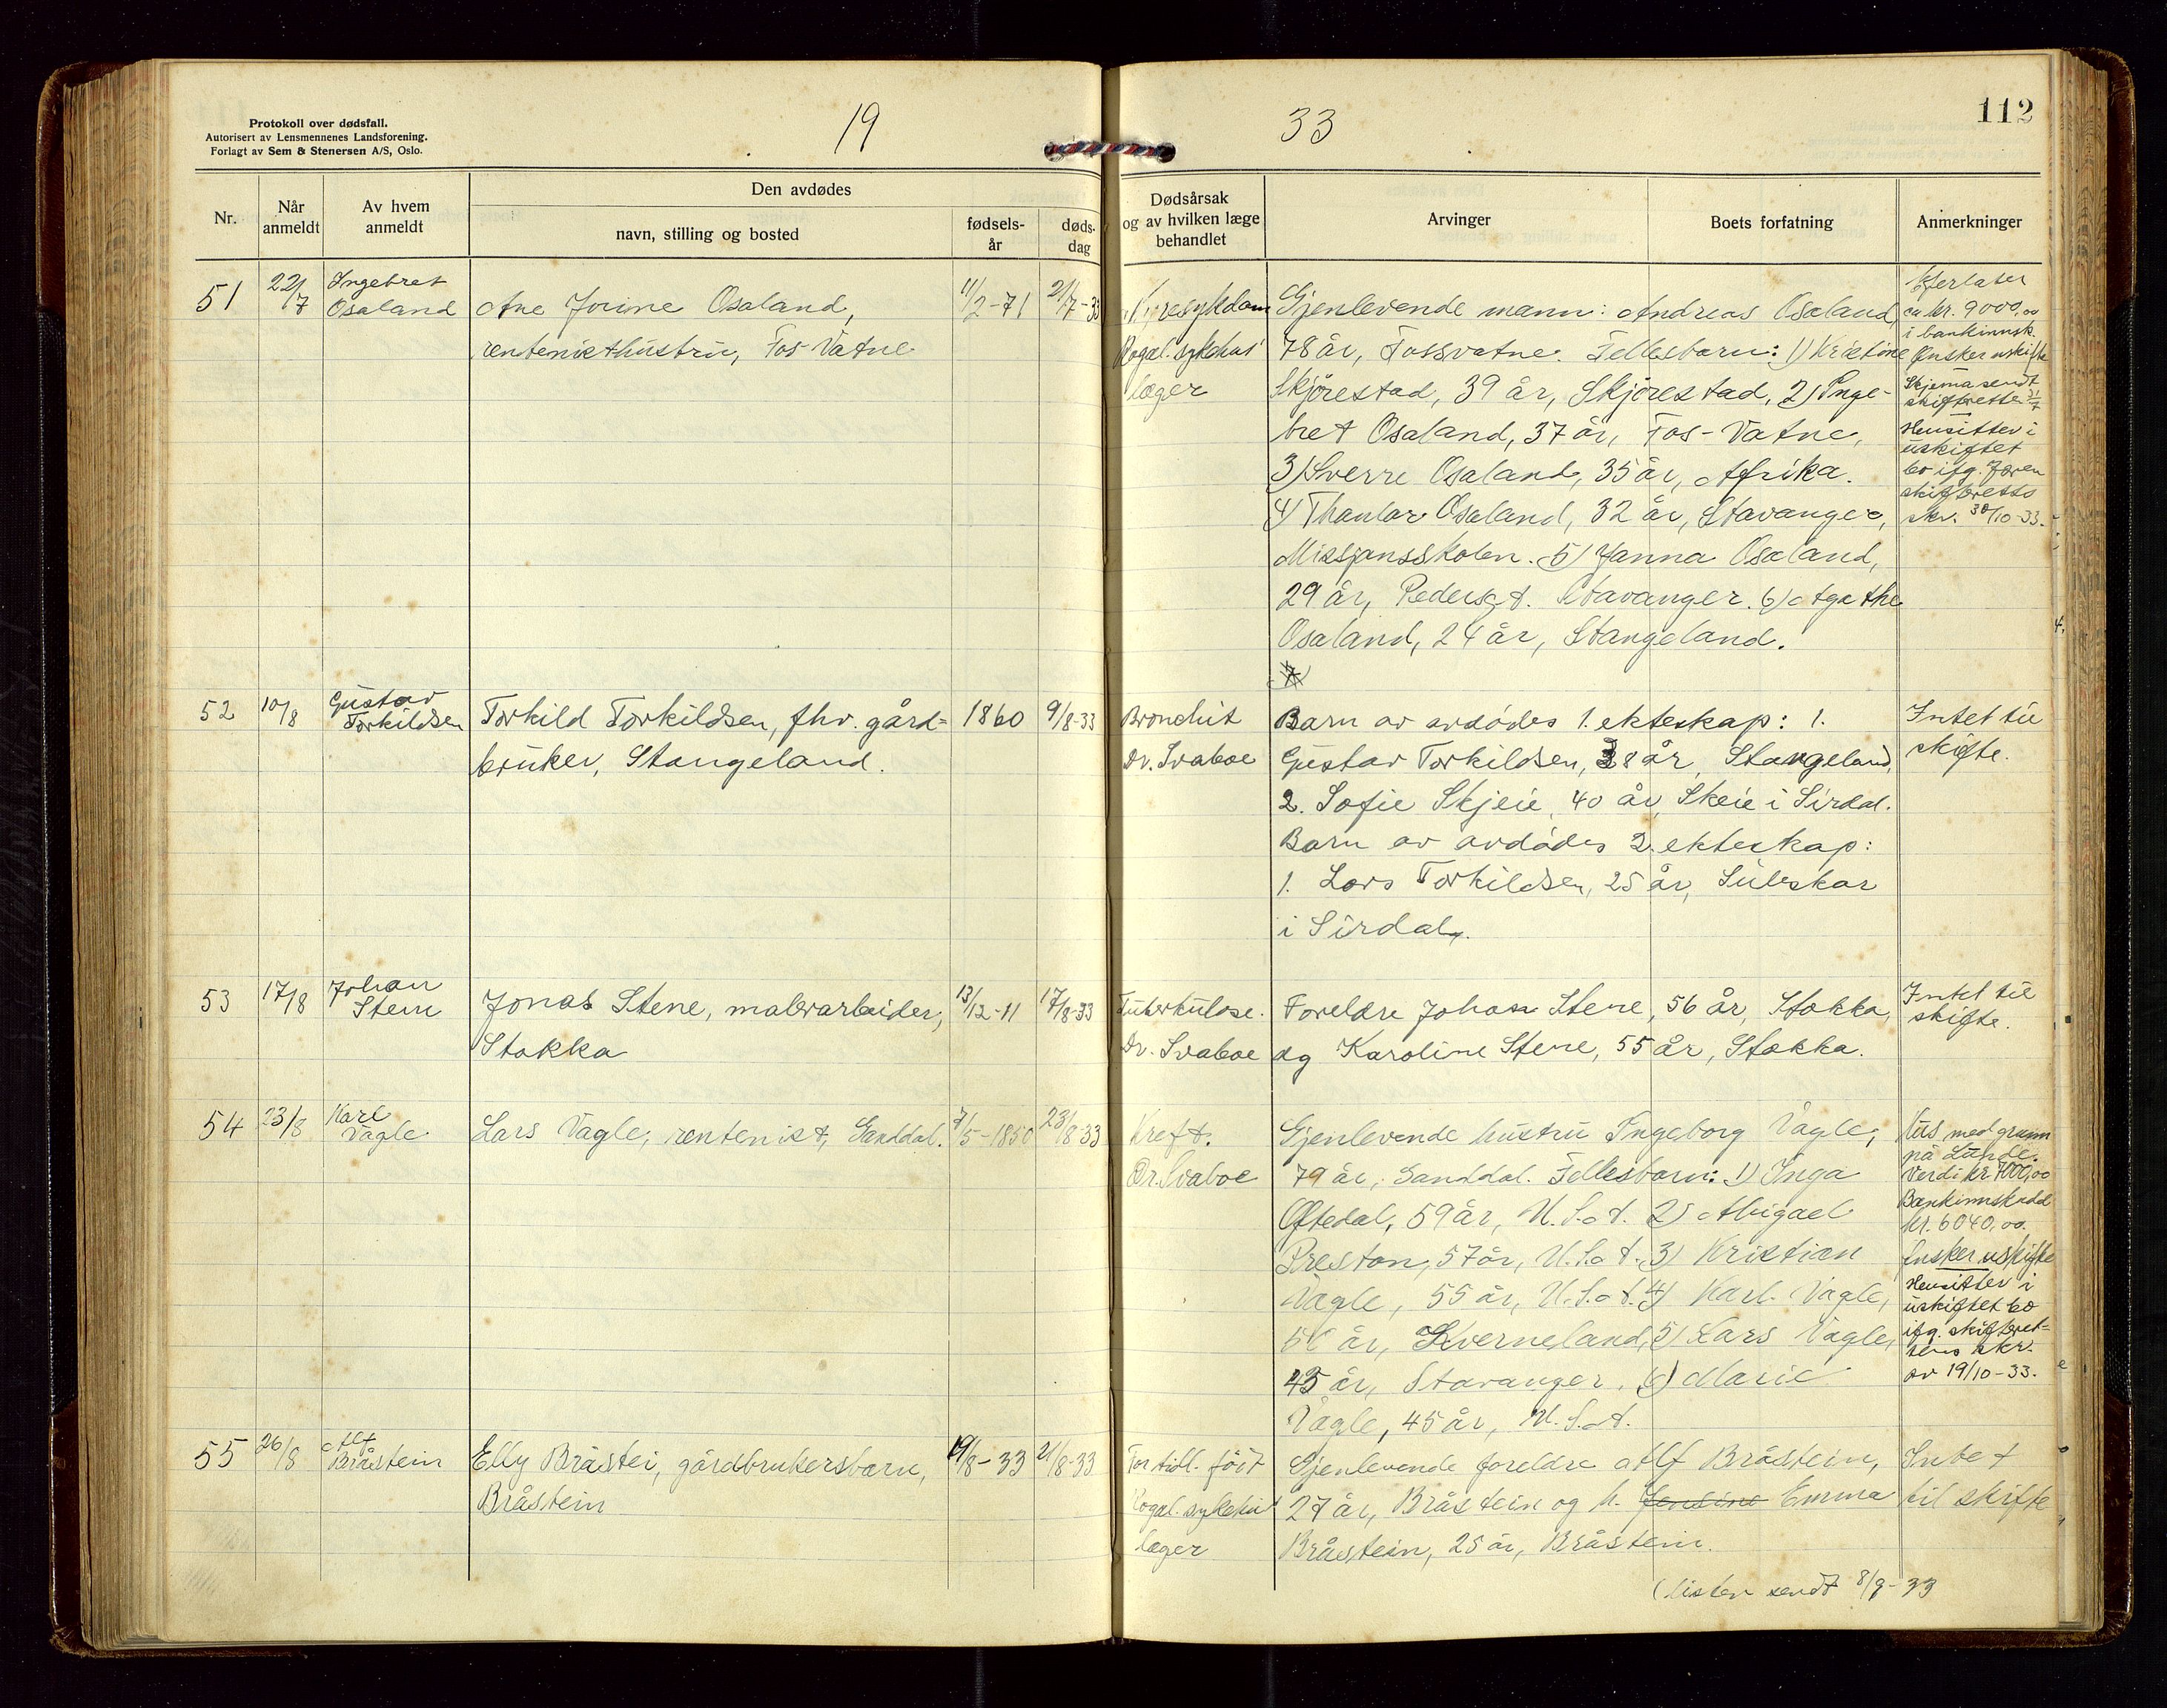 Protokoll over dødsfall.
Autorisert av Lensmennenes Landsforening.
Forlagt av Sem & Stenersen A/S, Oslo.
19
33
112
Nr.
Når anmeldt
Av hvem anmeldt
Den avdødes
navn, stilling og bosted
fødsels-år
døds-dag
Dødsårsak og av hvilken læge behandlet
Arvinger
Boets forfatning
Anmerkninger
51
22/7
Ingebret
Osaland
Ane Jorine Osaland,
rentenisthustru, Fos-Vatne
11/2-71
21/7-33
Nyresykdom
Rogal. sykehus'
læger
Gjenlevende mann: Andreas Osaland,
78 år, Fossvatne. Fellesbarn: 1) Kristine
Skjørestad, 39 år, Skjørestad, 2) Inge-
bret Osaland, 37 år, Fos-Vatne,
3) Sverre Osaland, 35 år, Afrika.
4) Osaland, 32 år, Stavanger,
Missjonsskolen. 5) Janna Osaland,
29 år, Pedersgt. Stavanger. 6) Agathe
Osaland, 24 år, Stangeland.
Efterlater
ca kr. 9000,00
i bankinnsk.
Ønsker uskifte
Skjema sendt
skifteretten 31/7
Hensitter i
uskiftet
bo ifg. Jæren
skifteretts
skr. 30/10-33.
52
10/8
Gustav
Torkildsen
Torkild Torkildsen, fhv. gård-
bruker, Stangeland.
1860
9/8-33
Bronchit
Dr. Svaboe
Barn av avdødes 1. ekteskap: 1.
Gustav Torkildsen, 38 år, Stangeland,
2. Sofie Skjeie, 40 år, Skeie i Sirdal.
Barn av avdødes 2. ekteskap:
1. Lars Torkildsen, 25 år, Suleskar
i Sirdal.
Intet til
skifte.
53
17/8
Johan
Stene
Jonas Stene, malerarbeider,
Stokka
13/12-11
17/8-33
Tuberkulose.
Dr. Svaboe
Foreldre Johan Stene, 56 år, Stokka,
og Karoline Stene, 55 år, Stokka.
Intet til
skifte.
54
23/8
Karl
Vagle
Lars Vagle, rentenist, Sanddal.
7/5-1850
23/8-33
Kreft.
Dr. Svaboe
Gjenlevende hustru Ingeborg Vagle,
79 år, Sanddal. Fellesbarn: 1) Inga
Oftedal, 59 år, U.S.A. 2) Abigael
Preston, 57 år, U.S.A. 3) Kristian
Vagle, 55 år, U.S.A. 4) Karl Vagle,
år, Kverneland, 5) Lars Vagle,
45 år, Stavanger, 6) Marie
Vagle, 45 år, U.S.A.
Hus med grunn
på Lunde.
Verdi kr. 7000,00
Bankinnskudd
kr. 6040,00.
Ønsker uskifte
Hensitter i
uskiftet bo
ifg. skifteret-
tens skr.
av 19/10-33.
55
26/8
Alf
Bråstein
Elly Bråstei, gårdbrukersbarn,
Bråstein
19/8-33
21/8-33
For tidl. født
Rogal. sykehus'
læger
Gjenlevende foreldre Alf Bråstein,
27 år, Bråstein og h. Jensine Emma
Bråstein, 25 år, Bråstein.
Intet
til skifte
(listen sendt 8/9-33